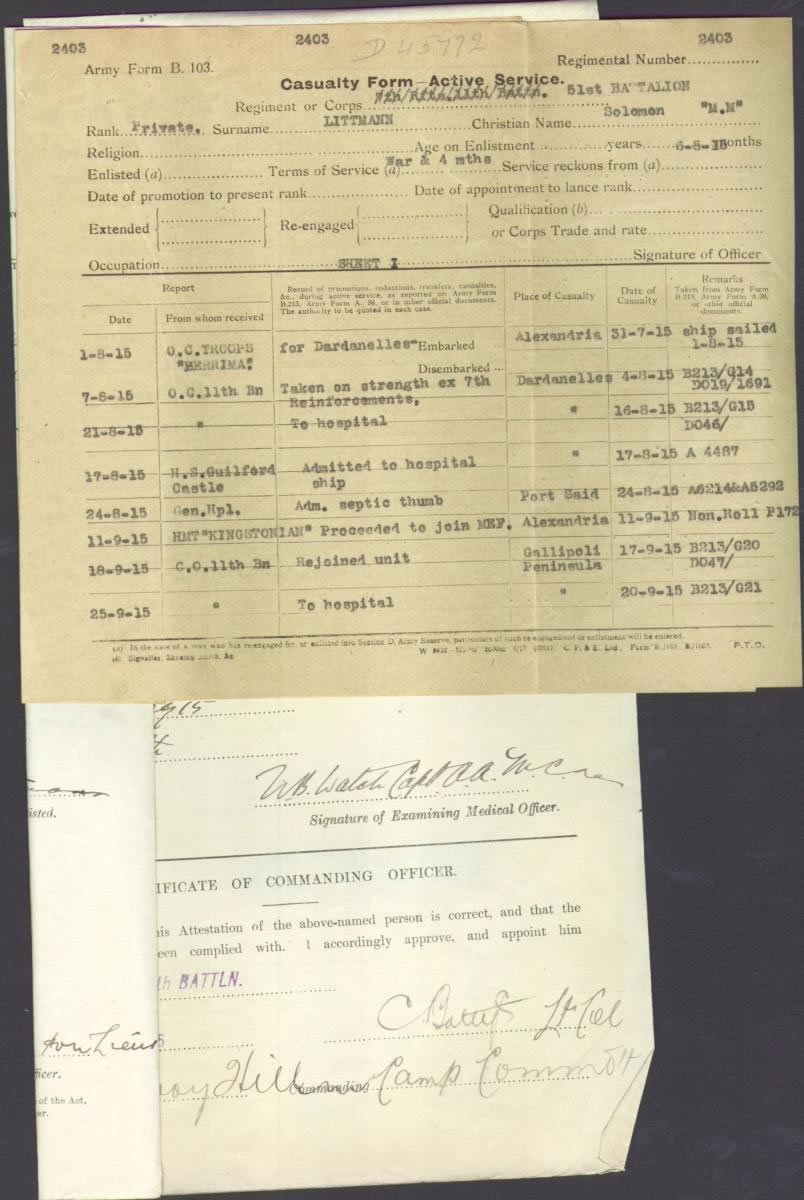 2403 2403 2403
D 45772
Army Form B. 103. Regimental Number
Casualty Form—Active Service.
Regiment or Corps 7th/Rfts.11th/Battn. 51st BATTALION
Rank Private. Surname LITTMANN Christian Name Solomon "M.M"
Religion Age on Enlistment years months 6-5-15
Enlisted (a) Terms of Service (a) War & 4 mths Service reckons from (a)
Date of promotion to present rank Date of appointment to lance rank
Extended Re-engaged Qualification (b)
or Corps Trade and rate
Occupation SHEET I Signature of Officer
Report
Date From whom received
Record of promotions, reductions, transfers, casualties, &c., during active service, as reported on Army Form B.213, Army Form A. 36, or in other official documents. The authority to be quoted in each case.
Place of Casualty
Date of Casualty
Remarks
Taken from Army Form B.213, Army Form A.36, or other official documents.
1-8-15 O.C.TROOPS "BERRIMA" for Dardanelles- Embarked Alexandria 31-7-15 ship sailed 1-8-15
Disembarked
7-8-15 O.C.11th Bn Taken on strength ex 7th Reinforcements, Dardanelles 4-8-15 B213/G14 DO19/1691
21-8-15 " To hospital " 16-8-15 B213/G15 DO46/
17-8-15 H.S.Guilford Castle Admitted to hospital ship " 17-8-15 A 4487
24-8-15 Gen.Hpl. Adm. septic thumb Port Said 24-8-15 A6214&A5292
11-9-15 HMT"KINGSTONIAN" Proceeded to join MEF. Alexandria 11-9-15 Non.Roll P172
18-9-15 C.O.11th Bn Rejoined unit Gallipoli Peninsula 17-9-15 B213/G20 DO47/
25-9-15 " To hospital " 20-9-15 B213/G21
(a) In the case of a man who has re-engaged for, or enlisted into Section D, Army Reserve, particulars of such re-engagement or enlistment will be entered.
(b) Signaller, Shoeing Smith, &c. C. P. & S. Ltd. P.T.O.
Signature of Examining Medical Officer.
IFICATE OF COMMANDING OFFICER.
isted.
his Attestation of the above-named person is correct, and that the
een complied with. I accordingly approve, and appoint him
th BATTLN.
Lt Col
ficer.
oy Hill Commanding Camp
of the Act,
er.